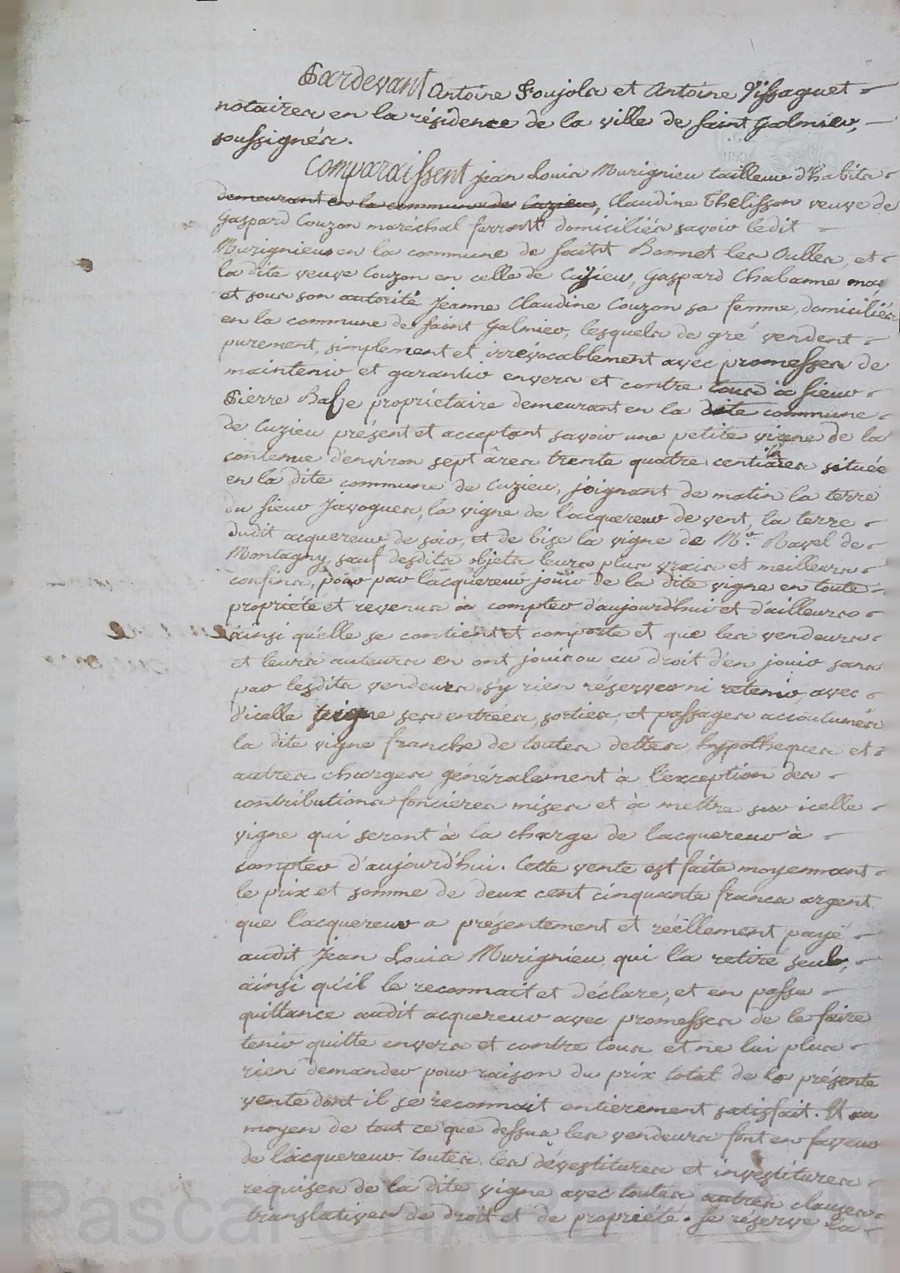 Pardevant Antoine Poujols et Antoine Vissaguet
notaires en la résidence de la ville de Saint Galmier,
soussignés.
Comparaissent Jean Louis Murigneu tailleur d'habits
demeurant en la commune de Cuzieu, Claudine Thelisson veuve de
Gaspard Couzon maréchal ferrant domiciliés savoir ledit
Murigneu en la commune de Saint Bonnet les Oulles, et
la dite veuve Couzon en celle de Cuzieu, Gaspard Chabanne
et sous son autorité Jeanne Claudine Couzon sa femme, domiciliés
en la commune de Saint Galmier, lesquels de gré vendent
purement, simplement et irrévocablement avec promesses de
maintenir et garantir envers et contre tous à sieur
Pierre Balze propriétaire demeurant en la dite commune
de Cuzieu présent et acceptant savoir une petite vigne de la
contenue d'environ sept âres trente quatre centiares située
en la dite commune de Cuzieu, joignant de matin la terre
du sieur Javogues, la vigne de l'acquereur de vent, la terre
dudit acquereur de soir, et de bise la vigne de Ravel de
Montagny, sauf desdits objets leurs plus vrais et meilleurs
confins, pour par l'acquereur jouir de la dite vigne en toute
propriété et revenus à compter d'aujourd'hui et d'ailleurs
ainsi qu'elle se contient et comporte et que les vendeurs
et leurs auteurs en ont joui ou eu droit d'en jouir sans
par lesdits vendeurs s'y rien réserver ni retenir, avec
d'icelle vigne ses entrées, sorties, et passages accoutumés
la dite vigne franche de toutes dettes hypotheques et
autres charges généralement à l'exception des
contributions foncieres mises et à mettre sur icelle
vigne qui seront à la charge de l'acquereur à
compter d'aujourd'hui. Cette vente est faite moyennant
le prix et somme de deux cent cinquante francs argent
que l'acquereur a présentement et réellement payé
audit Jean Louis Murigneu, qui l'a retiré seul,
ainsi qu'il le reconnait et déclare, et en passe
quittance audit acquereur avec promesses de le faire
tenir quitte envers et contre tous et ne lui plus
rien demander pour raison du prix total de la présente
vente dont il se reconnait entierement satisfait. Et au
moyen de tout ce que dessus les vendeurs font en faveur
de l'acquereur toutes les dévestitures et investitures
requises de la dite vigne avec toutes autres clauses
translatives de droit et de propriété. Se réserve la
Pascal CHARETRON